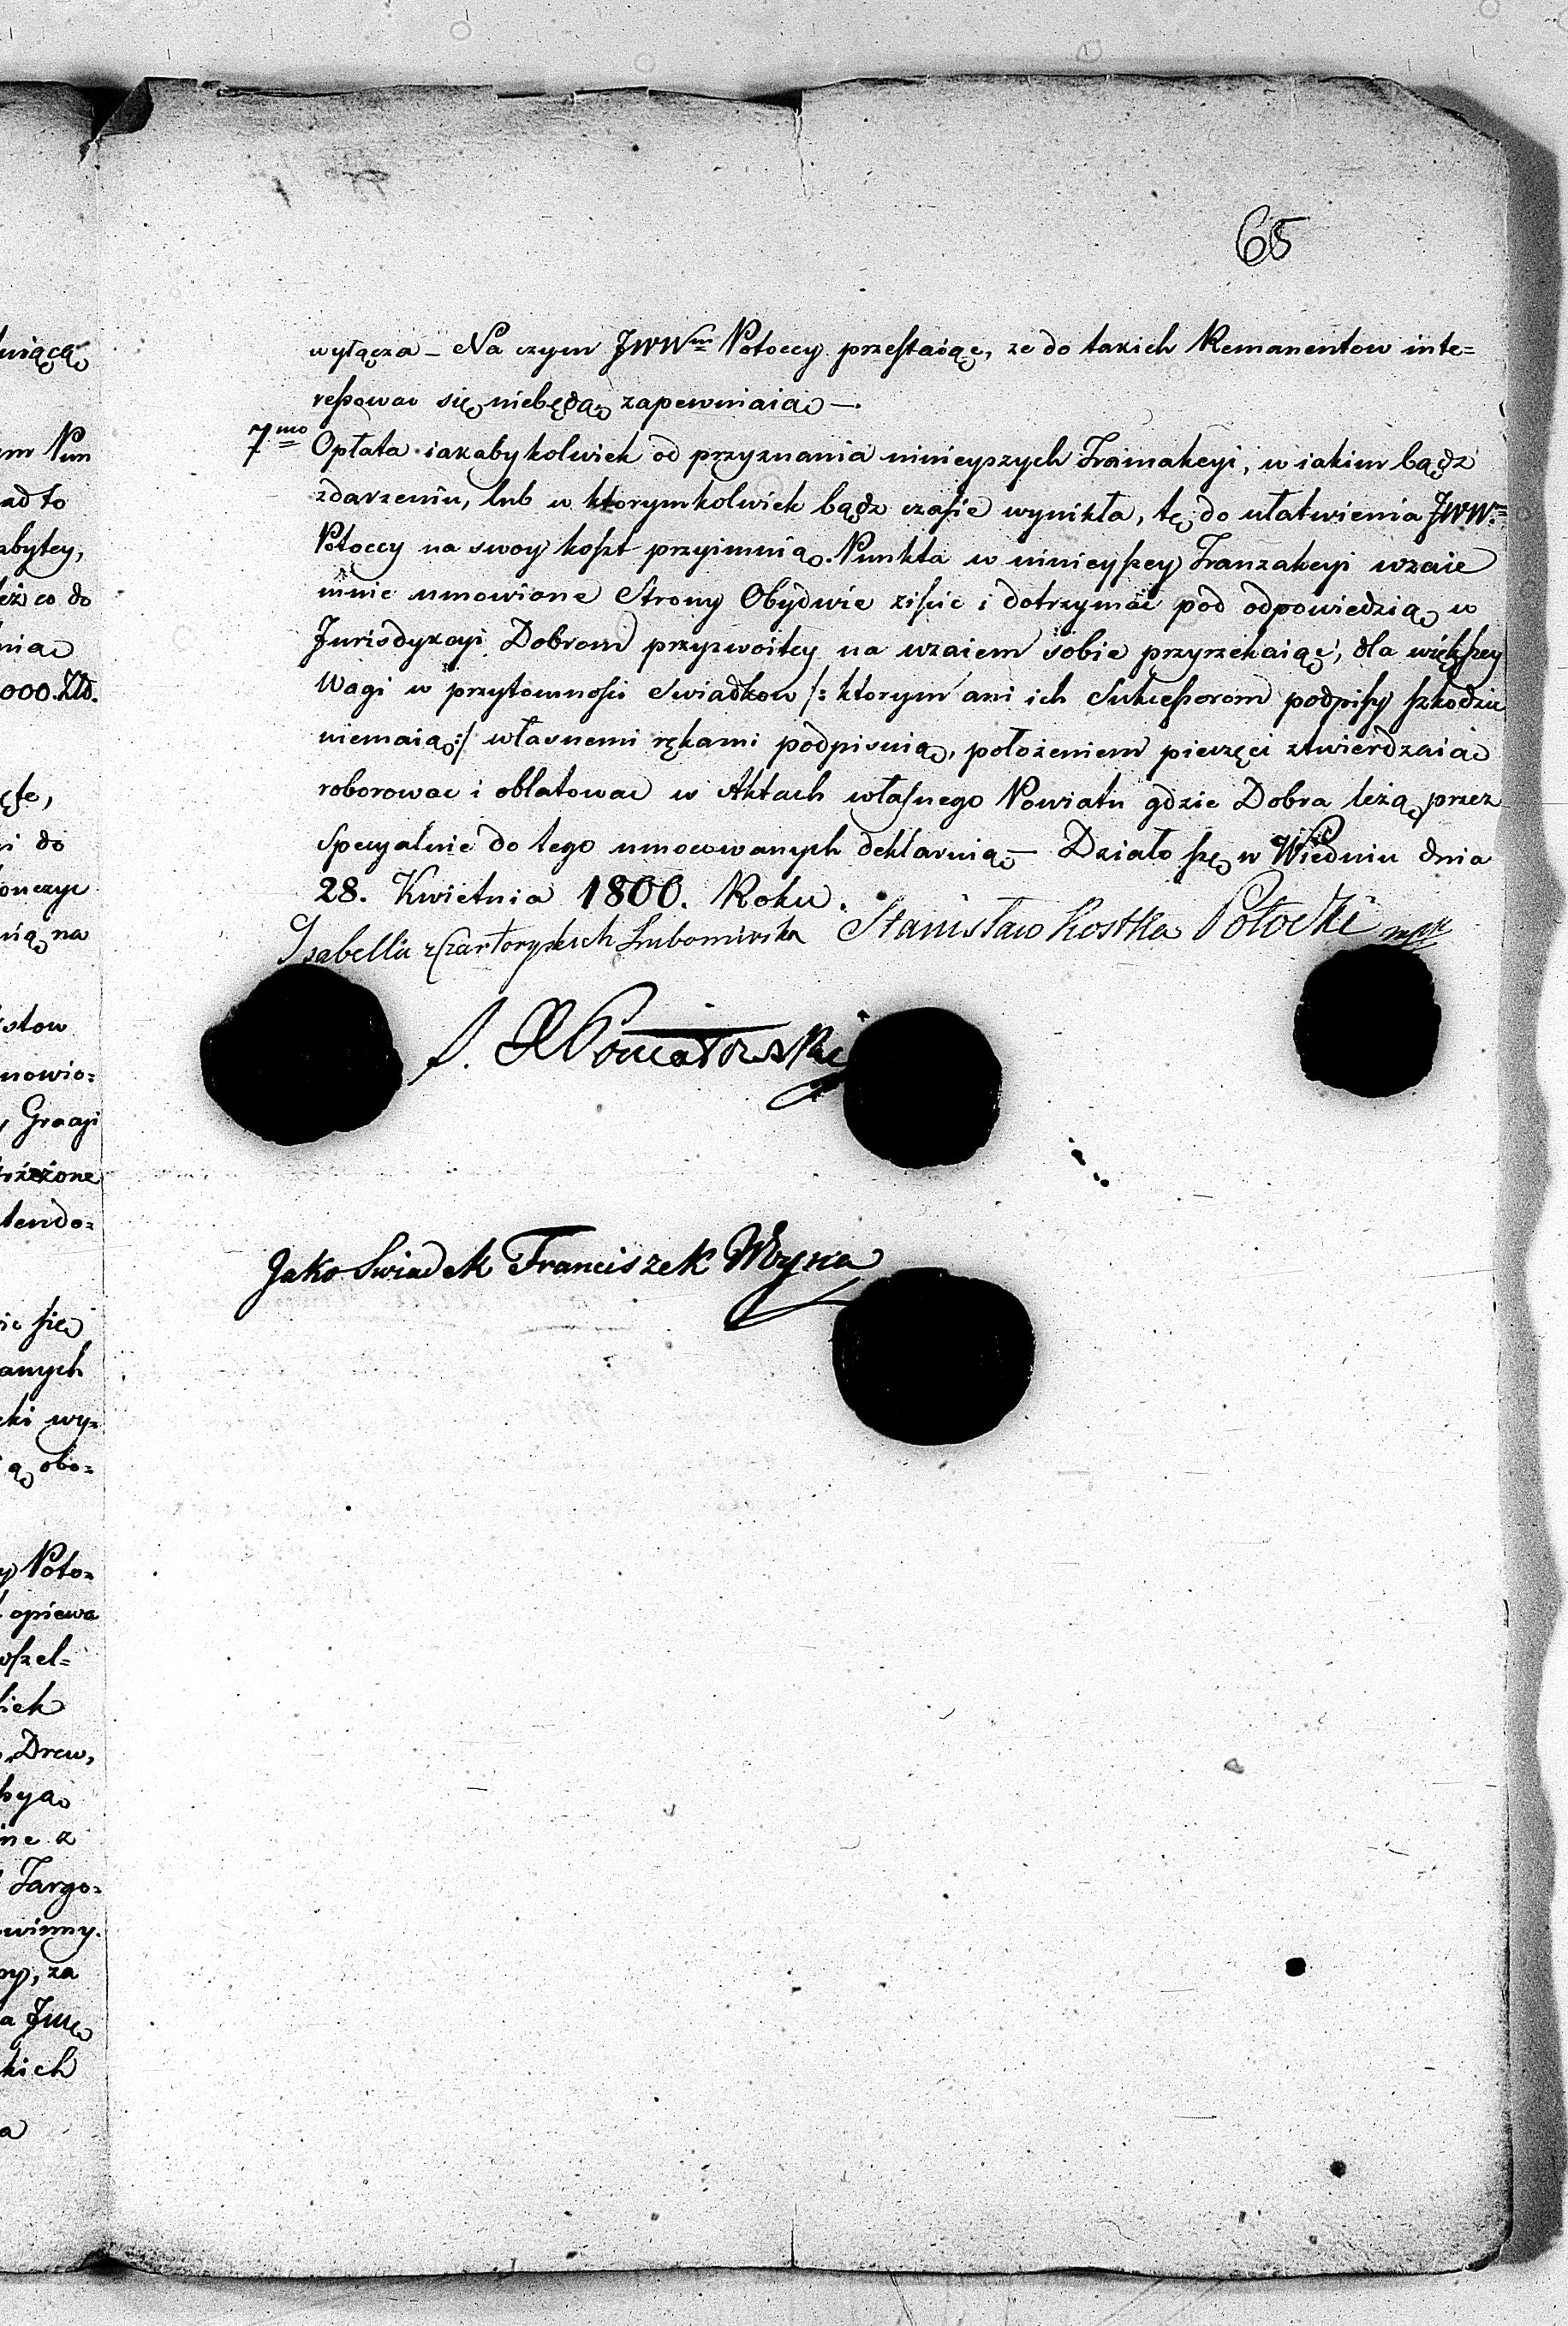 65
wyłącza – Na czym JWW<sup>ni</sup> Potoccy przestaiąc, ze do takich Remanentow inte=
ressowac się niebędą, zapewniaią –.
7<sup>mo</sup> Opłata iakabykolwiek od przyznania ninieyszych Tranzakcyi, w iakim bądz
zdarzeniu, lub w ktorymkolwiek bądz czasie wynikła, tę do ułatwienia JWW<sup>ni</sup>
Potoccy na swoy koszt przyimuią. Punkta w ninieyszey Tranzakcyi wzaie
mnie umowione Strony Obydwie ziścic i dotrzymac pod odpowiedzią w
Jurisdykcyi Dobrom przyzwoitey na wzaiem sobie przyrzekaiąc, dla większey
Wagi w przytomnosci Swiadkow /: ktorym ani ich Sukcessorom podpisy szkodzic
niemaią :/ własnemi rękami podpisuią, położeniem pieczęci ztwierdzaią
roborowac i oblatowac w Aktach własnego Powiatu gdzie Dobra leżą, przez
specyalnie do tego umocowanych deklaruią – Działo się w Wiedniu dnia
28. Kwietnia 1800. Roku.
Isabella z Czartoryskich Lubomirska Stanisław Kostka Potocki mpr
Poniatowski
Jako Swiadek Franciszek Woyna
uiącą
Pun
ad to
abytey,
też co do
nia
000. Złt.
do
nią na
nowio=
Gracyi
trzeżone
tendo=
się
anych
wy=
obo=
Poto=
opiewa
wszel=
Drew,
z
Targo=
winny.
za
kich